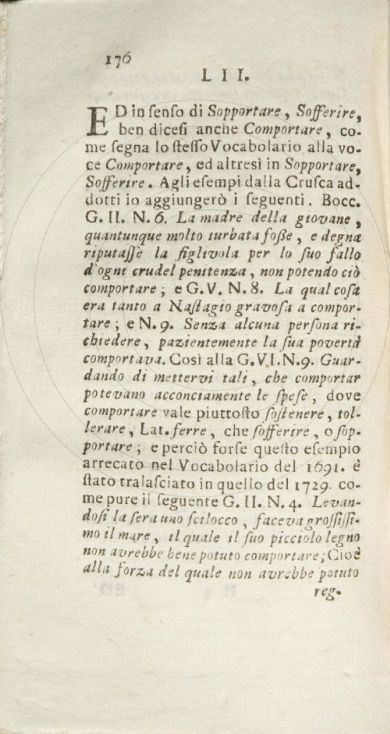 176
LII.
ED in senso di Sopportare, Sofferire,
ben dicesi anche Comportare, co-
me segna lo stesso Vocabolario alla vo-
ce Comportare, ed altresì in Sopportare,
Sofferire. Agli esempi dalla Crusca ad-
dotti io aggiungerò i seguenti. Bocc.
G. II. N. 6. La madre della giovane,
quantunque molto turbata fosse, e degna
riputasse la figlivola per lo suo fallo
d'ogni crudel penitenza, non potendo ciò
comportare; e G. V. N. 8. La qual cosa
era tanto a Nastagio gravosa a compor-
tare; e N. 9. Senza alcuna persona ri-
chiedere, pazientemente la sua povertà
comportava. Così alla G. VI. N. 9. Guar-
dando di mettervi tali, che comportar
potevano acconciamente le spese, dove
comportare vale piuttosto sostenere, tol-
lerare, Lat. ferre, che sofferire, o sop-
portare; e perciò forse questo esempio
arrecato nel Vocabolario del 1691. è
stato tralasciato in quello del 1729. co-
me pure il seguente G. II. N. 4. Levan-
dosi la sera uno scilocco, faceva grossissi-
mo il mare, il quale il suo picciolo legno
non avrebbe bene potuto comportare; Cioè
alla forza del quale non avrebbe potuto
reg-